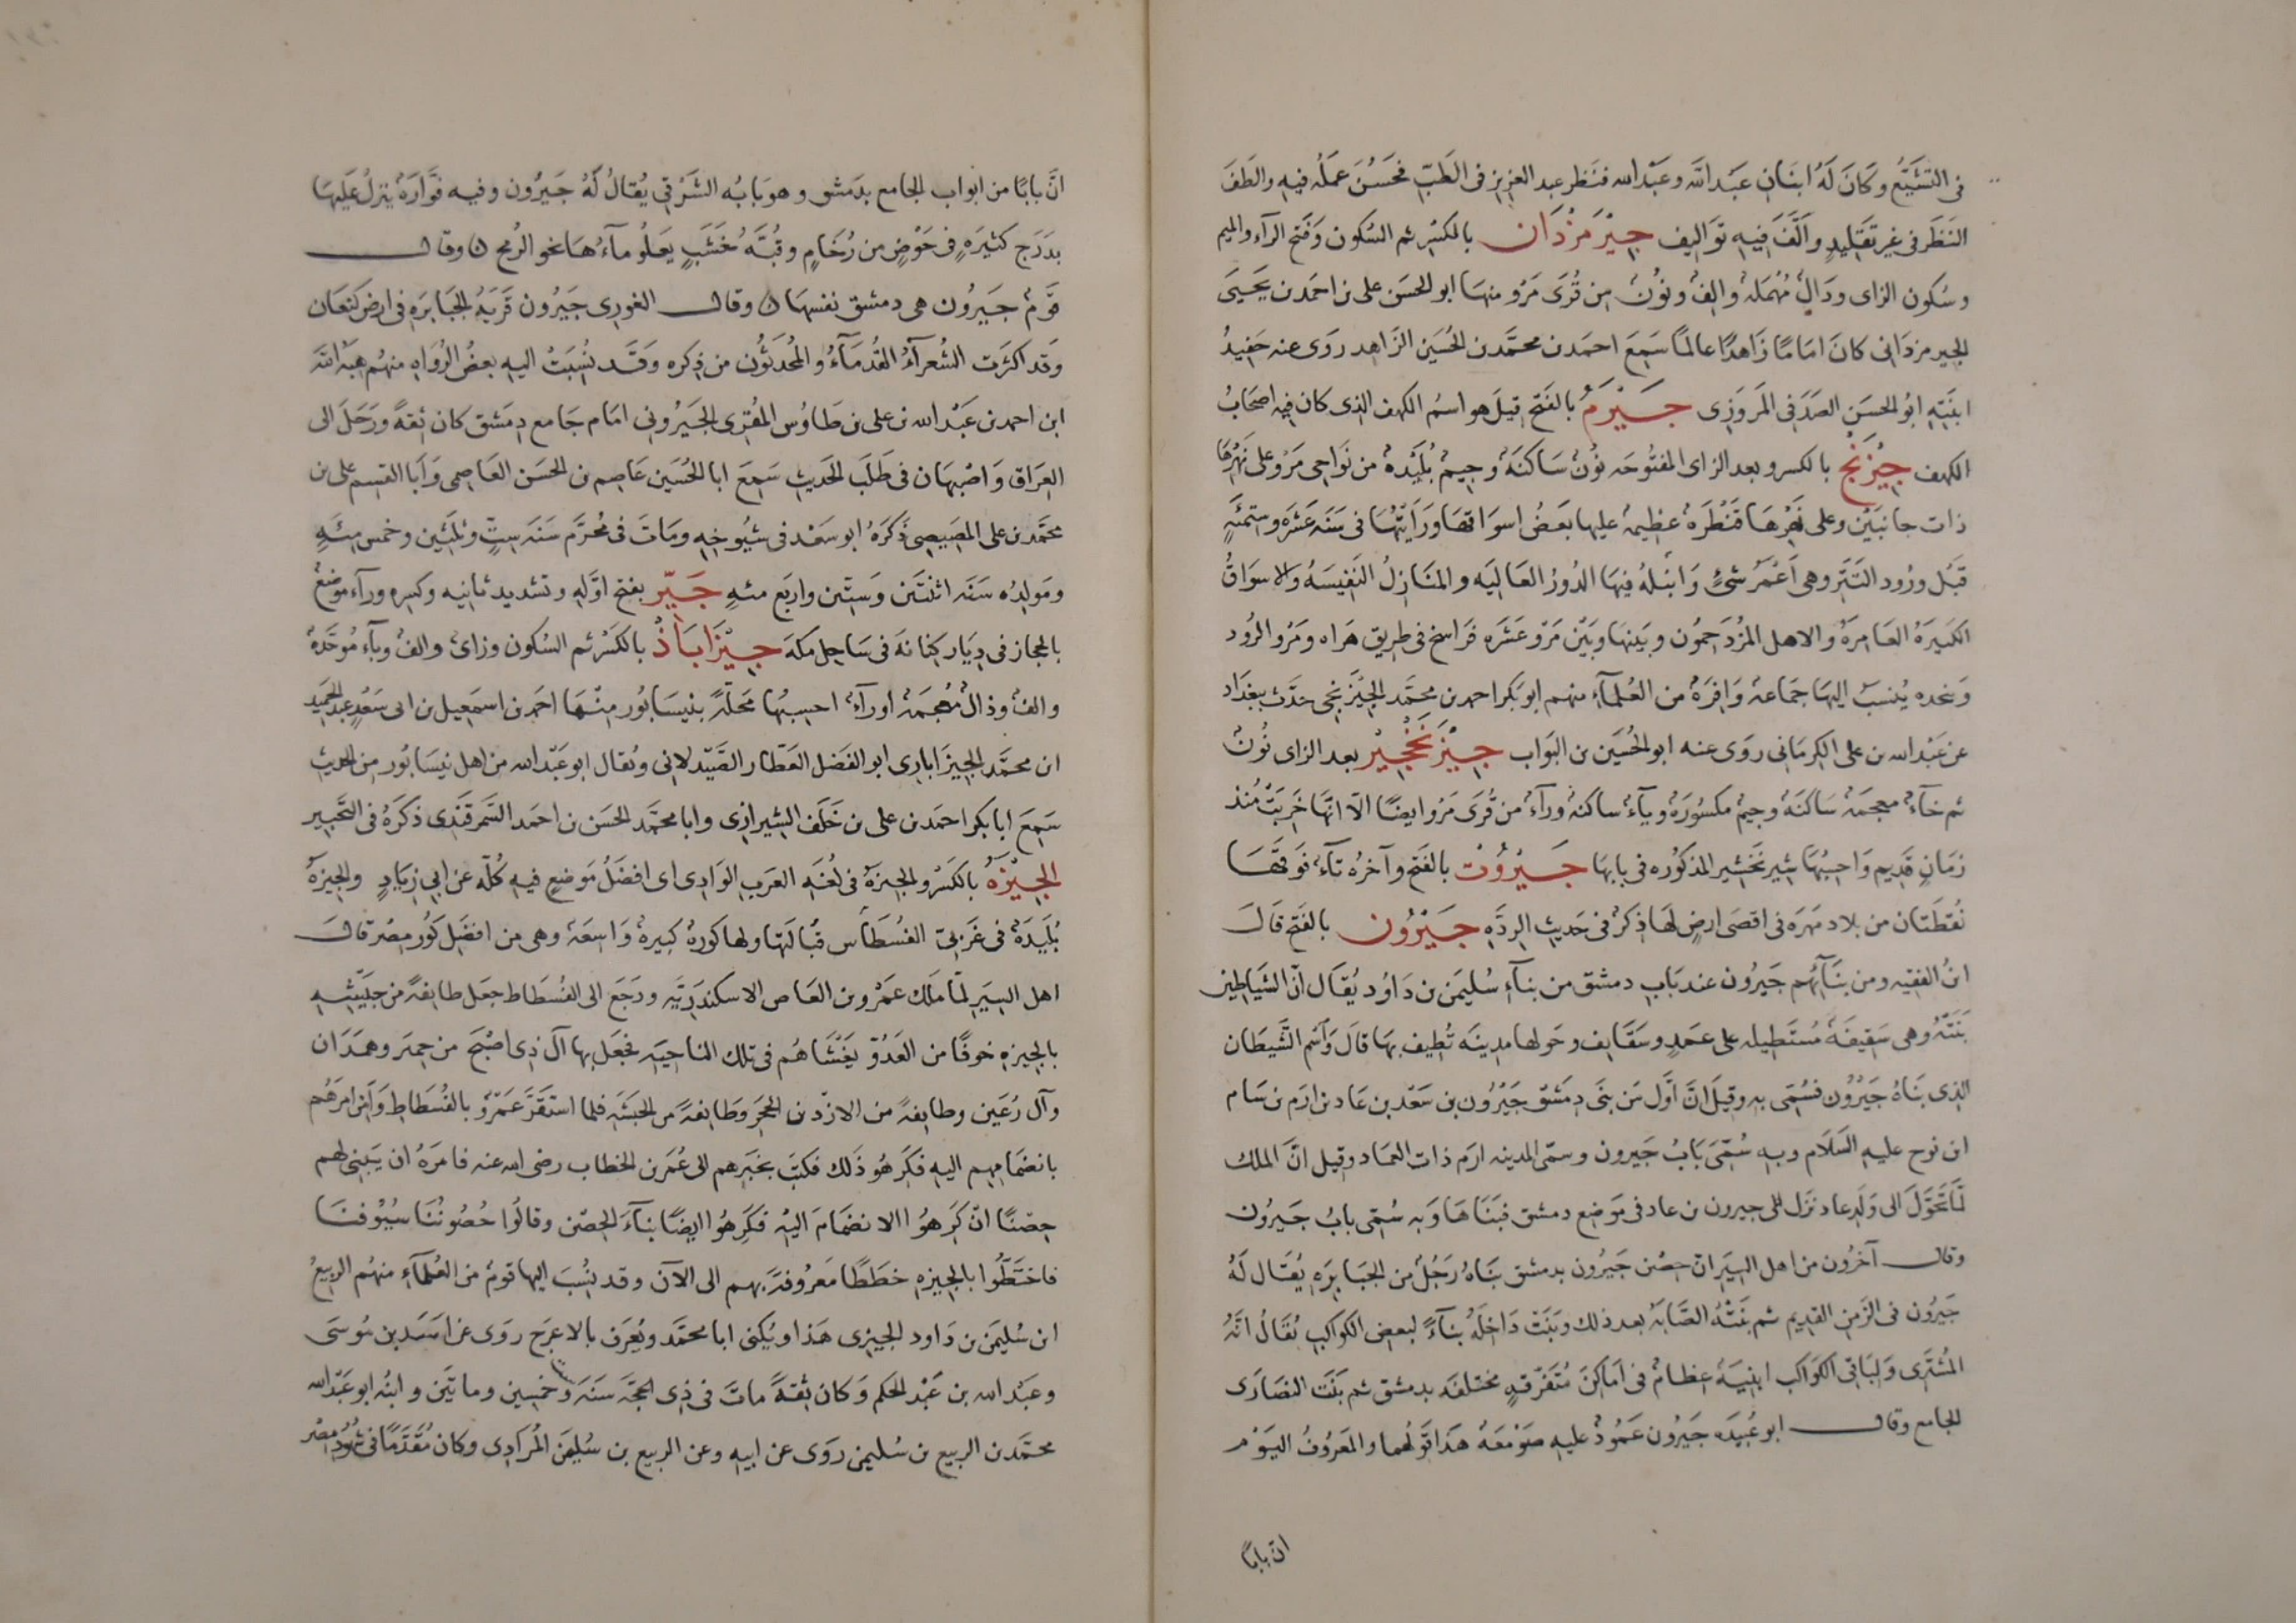 فى التشَيُّع وكَانَ لَهُ ابنَانِ عَبد اللَّه وعَبْد الله فنَظر عبد العزيزِ فى الطَبّ فحَسُنَ عَمَلُه فيهِ والطَفَ
النَظَر فى غيرِ تقليدٍ والَّفَ فيهِ تَواليف جِيْرَمَزْدَان بالكسْرِ ثم السُكون وَفتح الرآء والميم
وسُكون الزاى ودَالٌ مُهمَلة والِفٌ ونوُنٌ مِن قُرَى مَرْو منهَا ابو الحسَن على بن احمَد بن يحَيىَ
الجيرمزدَانى كانَ امَامًا زَاهدًا عالمًا سَمِعَ احمَد بن محمَّد بن الحُسَين الزَاهد روَى عنه حَفيدُ
ابنَتِهِ ابُو الحسَن الصَدَفى المَروَزِى جَيْرَمُ بالفَتح قيلَ هو اسمُ الكهف الذى كان فيهِ اصحَابُ
الكهف جِيْزَنْجُ بالكسر وبعد الزاى المفتُوحَه نوُنٌ سَاكنَةٌ وجيمٌ بُلَيْدةٌ من نَواحى مَرْو على نَهْرهَا
ذات جانبَيْن وعلى نَهْرهَا قَنْطرَةٌ عظيمةٌ عليها بَعضُ اسوَاقهَا ورَأيتُهَا فى سَنَه عَشَره وستمئةٍ
قبْل ورُود التَتَر وهى اَعْمَرُ شئٍ وَانبَلهُ فيهَا الدُورُ العَاليَه والمنَازلُ النَفيْسَهُ والاسوَاقُ
الكبيرَةُ العَامِرَهُ والاهل المزُدَحِمُون وبَينهَا وبَيْن مَرْو عَشَرَه فرَاسخ فى طريق هَراه ومَرْو الرُود
وَبنجده يُنسَبُ اليهَا جمَاعة وَافرَةٌ من العُلمآءِ منهم ابو بَكر احمد بن محمَّد الجيْزَنجى حَدَّث ببغدَاد
عن عَبْد الله بن على الكِرمَانى روَى عنه ابو الحُسَين بن البَواب جِيْزَنَخْجِيْر بعد الزاى نوُنٌ
ثم خآءٌ معجمَةٌ سَاكنَهٌ وجيمٌ مكسُورَةٌ ويآءٌ ساكنةٌ ورآءٌ من قُرَى مَرْو ايضًا الاّ انهَّا خَربَتْ مُنذ
زمَانٍ قَديم وَاحسِبُهَا شِير نَخشير المذكوُره فى بابهَا جَيْرُوْت بالفَتح وآخرُه تآءٌ فَوقهَا
نُقطَتان من بلاد مَهرَه فى اقصَى ارضٍ لهَا ذكرٌ فى حَديث الردَّهِ جَيْرُوْن بالفَتح قَالَ
ابنُ الفقيه ومن بنَآئهُم جَيرُون عند بَابِ دمشق من بنآءِ سُليمَن بن دَاوُد يُقَال انّ الشَياطين
بَنَتْهُ وهى سَقيفَةٌ مُستَطيله على عمَدٍ وسَقَايف وحَولها مدينَه تُطيف بهَا قالَ وَاسْم الشَّيطَان
الذى بنَاهُ جَيْرُوْن فسُمّى به وقيلَ انَّ أوَّل مَن بنَى دِمَشق جَيْرُون بن سَعْد بن عَاد بن ارَم بن سَام
ابن نوح عليهِ السَلَام وبهِ سُمّىَ بَابُ جَيرون وسمّى المدينه ارَم ذات العمَاد وقيل انّ الملك
لمَّا تحَوَّلَ الى وَلَدِ عاد نزَل جيرون بن عاد فى مَوضِع دمشق فبَنَاهَا وَبهِ سُمّى بابُ جَيرُون
وقال آخرُون من اهل السِيَرِ انّ حصْن جَيرُون بدمشق بنَاهُ رَجُلٌ من الجبَابرَهِ يُقَال لَهُ
جَيرُون فى الزَمن القديم ثم بنَتْهُ الصَّابَةُ بعد ذلك وبَنتْ دَاخِلَهُ بنآءً لبعض الكواكبِ يُقَالُ انّهُ
المُشتَرى وَلباقى الكَواكب ابنيَةً عظامٌ فى اَمَاكِنَ مُتَفَرّقهٍ مختلفَه بدمشق ثم بَنَت النصَارَى
الجامع وقال ابو عُبَيدَه جَيرُون عَمُودٌ عليهِ صَوْمَعَةٌ هَذا قَولهُما والمَعرُوفُ اليَوْم
انّ بابًا
انَّ بابًا من ابواب الجامع بدَمشق وهوَ بَابُه الشَرْقى يُقالُ لَهُ جَيرُون وفيه فوَّارَةٌ ينزلُ عَليهَا
بدَرَج كثيرَهٍ فى حَوْضٍ من رُخَامٍ وقُبَّهُ خَشَبٍ يعَلُو مآءُهَا نحو الرُمح وقال
قَوْمٌ جَيرُون هى دمشق نفسهَا وقال الغورى جَيرُون قَريَهُ الجبَابَره فى ارض كنعَان
وَقد اكثَرت الشُعرآءُ القُدمَآءُ والمُحدَثُون من ذِكره وَقَد نُسِبَتُ اليهِ بعضُ الرُوَاه منهُم هبَهُ اللّه
ابن احمد بن عَبْد الله بن على بن طَاوُس المُقرى الجَيْرُونى امَام جَامع دِمَشق كان ثقةً ورَحَلَ الى
العِرَاق وَاصْبهَان فى طَلَب الحَديث سَمِعَ ابا الحُسَين عَاصِم بن الحسَن العَاصِمى وَأبَا القسِم على بن
محمَّد بن على المصَيصى ذَكَرَهُ ابو سَعْد فى شيُوخهِ ومَاتَ فى مُحرَّم سَنَه سِتٍّ وثلثَين وخمس مئهٍ
ومَولدُه سَنَه اثنتَين وَستّين واربَع مئهٍ جَيِّر بفتح اوَّلهِ وتشديد ثانيه وكسره ورآء موضعٌ
بالحجاز فى دِيَار كنَانَه فى سَاحِل مكَهَ جِيْزَابَاذُ بالكَسْر ثم السُكون وزاىٌ والفٌ وبآء مُوحَّدةٌ
والفٌ وذالٌ مُعجمَةٌ اورآءٌ احسِبُهَا محَلّهً بنيسَابُور منْهَا احمَد بن اسمَعيل بن ابى سَعْدٍ عبد الحميد
ابن محمَّد الجيزَابارى ابو الفَضل العَطّار الصَّيدلانى ويُقال ابو عَبْد الله من اهل نيسَابُور من الحديث
سَمِعَ ابا بكر احمَد بن على بن خَلَف الشيرازى وابا محمَّد الحسَن بن احمَد السَّمرقَندى ذكَرَهُ فى التَّحبير
الجِيْزَةُ بالكَسْر والجيزَةُ فى لغَه العرَب الوَادِى اى افضَلُ مَوضعٍ فيهِ كُلّه عن ابى زيَادٍ والجيزةُ
بُليَدةٌ فى غَربىّ الفسْطَاس قبَالتهَا ولها كورَةٌ كبيرةٌ وَاسِعَةٌ وهى من افضَل كُوَرِ مصْر قال
اهل السِيَرِ لمّا ملَك عَمْرو بن العَاص الاسكندَريّه ورجَعَ الى الفسْطَاط جعَل طايفةً من جَيْشهِ
بالجيزهِ خوفًا من العَدُوّ يَغْشَاهُم فى تلك الناحيَه فجَعَل بها آلَ ذى اصْبَح من حميَر وهمْدَان
وآل رُعَين وطايفةً من الازْد بن الحجَر وطَايفةً من الحبَشَه فلما استَقَرَّ عَمْرْو بالفُسَطاطِ وَامِنَ امرَهُم
بانضمَامِهِم اليهِ فكَرهُو ذَلك فكَتَبَ بخَبَرهم الى عُمَر بن الخطاب رضى الله عنه فامَرَهُ ان يَبنى لهم
حِصْنًا انْ كَرهُوا الانضمَامَ اليْهِ فكَرِهُوا ايضًا بنآءَ الحصْن وقالُوا حُصُونُنَا سُيُوْفنَا
فاختَطُّوا بالجيزهِ خطَطًا مَعرُوفةً بهم الى الآن وقد نُسِبَ اليها قومٌ من العُلمآءِ منهُم الربيعُ
ابن سُليمَن بن دَاود الجيزى هَذا ويُكنى ابا محمَّد ويُعرَف بالاعرَج روَى عن اسَد بن مُوسَى
وعَبْد الله بن عَبْد الحكم وَكان ثقةً ماتَ فى ذى الحجَّه سَنَه ستّ وخمسين ومايتَين وابنُه ابو عَبْد الله
محمَّد بن الربيع بن سُليمن روَى عن ابيهِ وعن الربيع بن سُليمَن المُرَادِى وكان مُقَدَّمًا فى شُهُود مصْر